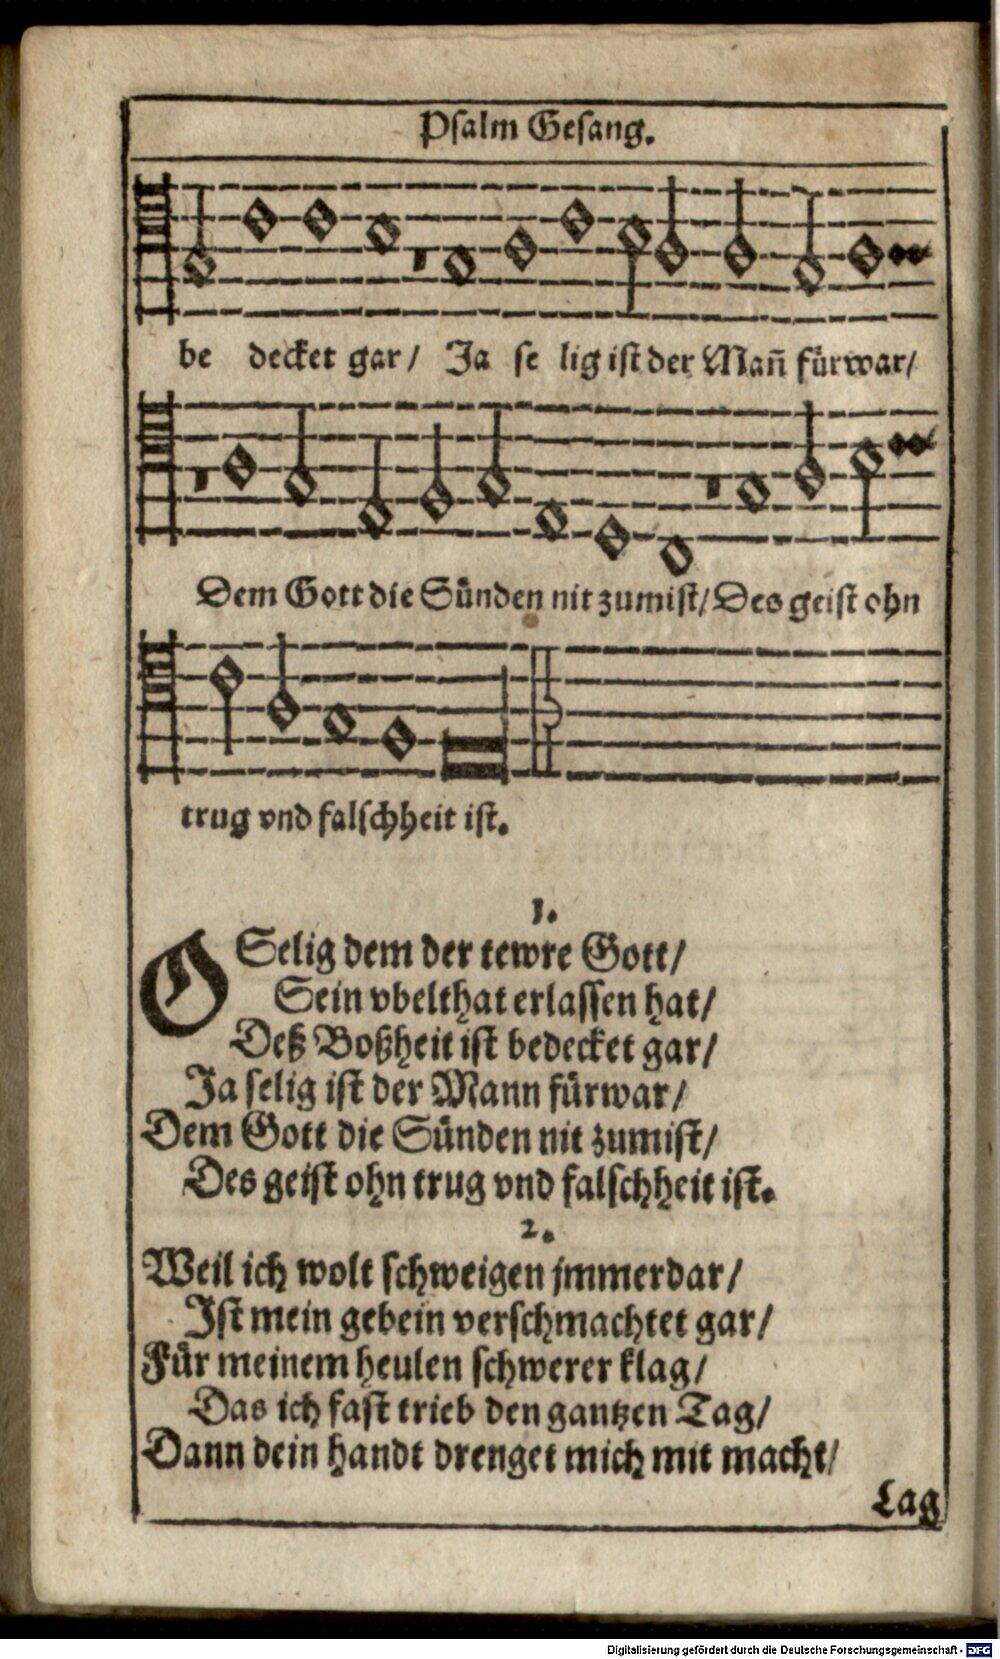 Psalm Gesang.
be decket gar/ Ja se lig ist der Mañ fürwar/
Dem Gott die Sünden nit zumist/ Des geist ohn
trug vnd falschheit ist.
1.
O Selig dem der tewre Gott/
Sein vbelthat erlassen hat/
Deß Boßheit ist bedecket gar/
Ja selig ist der Mann fürwar/
Dem Gott die Sünden nit zumist/
Des geist ohn trug vnd falschheit ist.
2.
Weil ich wolt schweigen jmmerdar/
Ist mein gebein verschmachtet gar/
Für meinem heulen schwerer klag/
Das ich fast trieb den gantzen Tag/
Dann dein handt drenget mich mit macht/
Lag
Digitalisierung gefördert durch die Deutsche Forschungsgemeinschaft - DFG